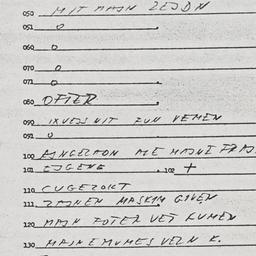 050 MIT MAJN ZEJDN
051 0
060 0
070 0
071 0
080 OFTER
090 IXVEJS NIT FUN VEMEN
091 0
100 AJNGELTON ALE MAJNE FRAJ
101 EJGENE 102 +
110 CUGEZOKT
111 ZAJNEN MASKIM GIVEN
120 MAJN FOTER VET KUMEN
130 MAJNE MUMES VELN K.